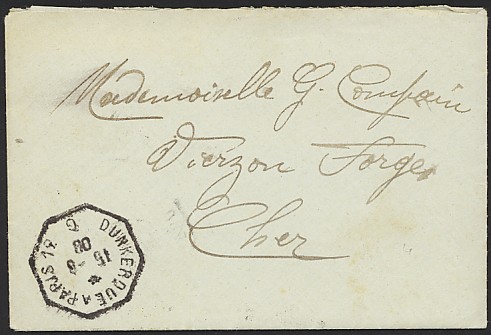 Mademoiselle G. Compain
Vierzon Forges
Cher
DUNKERQUE A PARIS 1º
15 -8
08